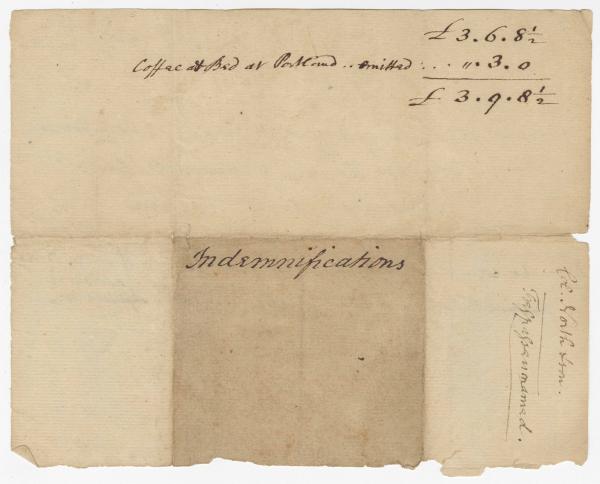 £ 3. 6. 8 1/2
Coffee at Bed at Portland .. omitted : . . " . 3. 0
£ 3. 9. 8 1/2
Indemnifications
Col. North & son.